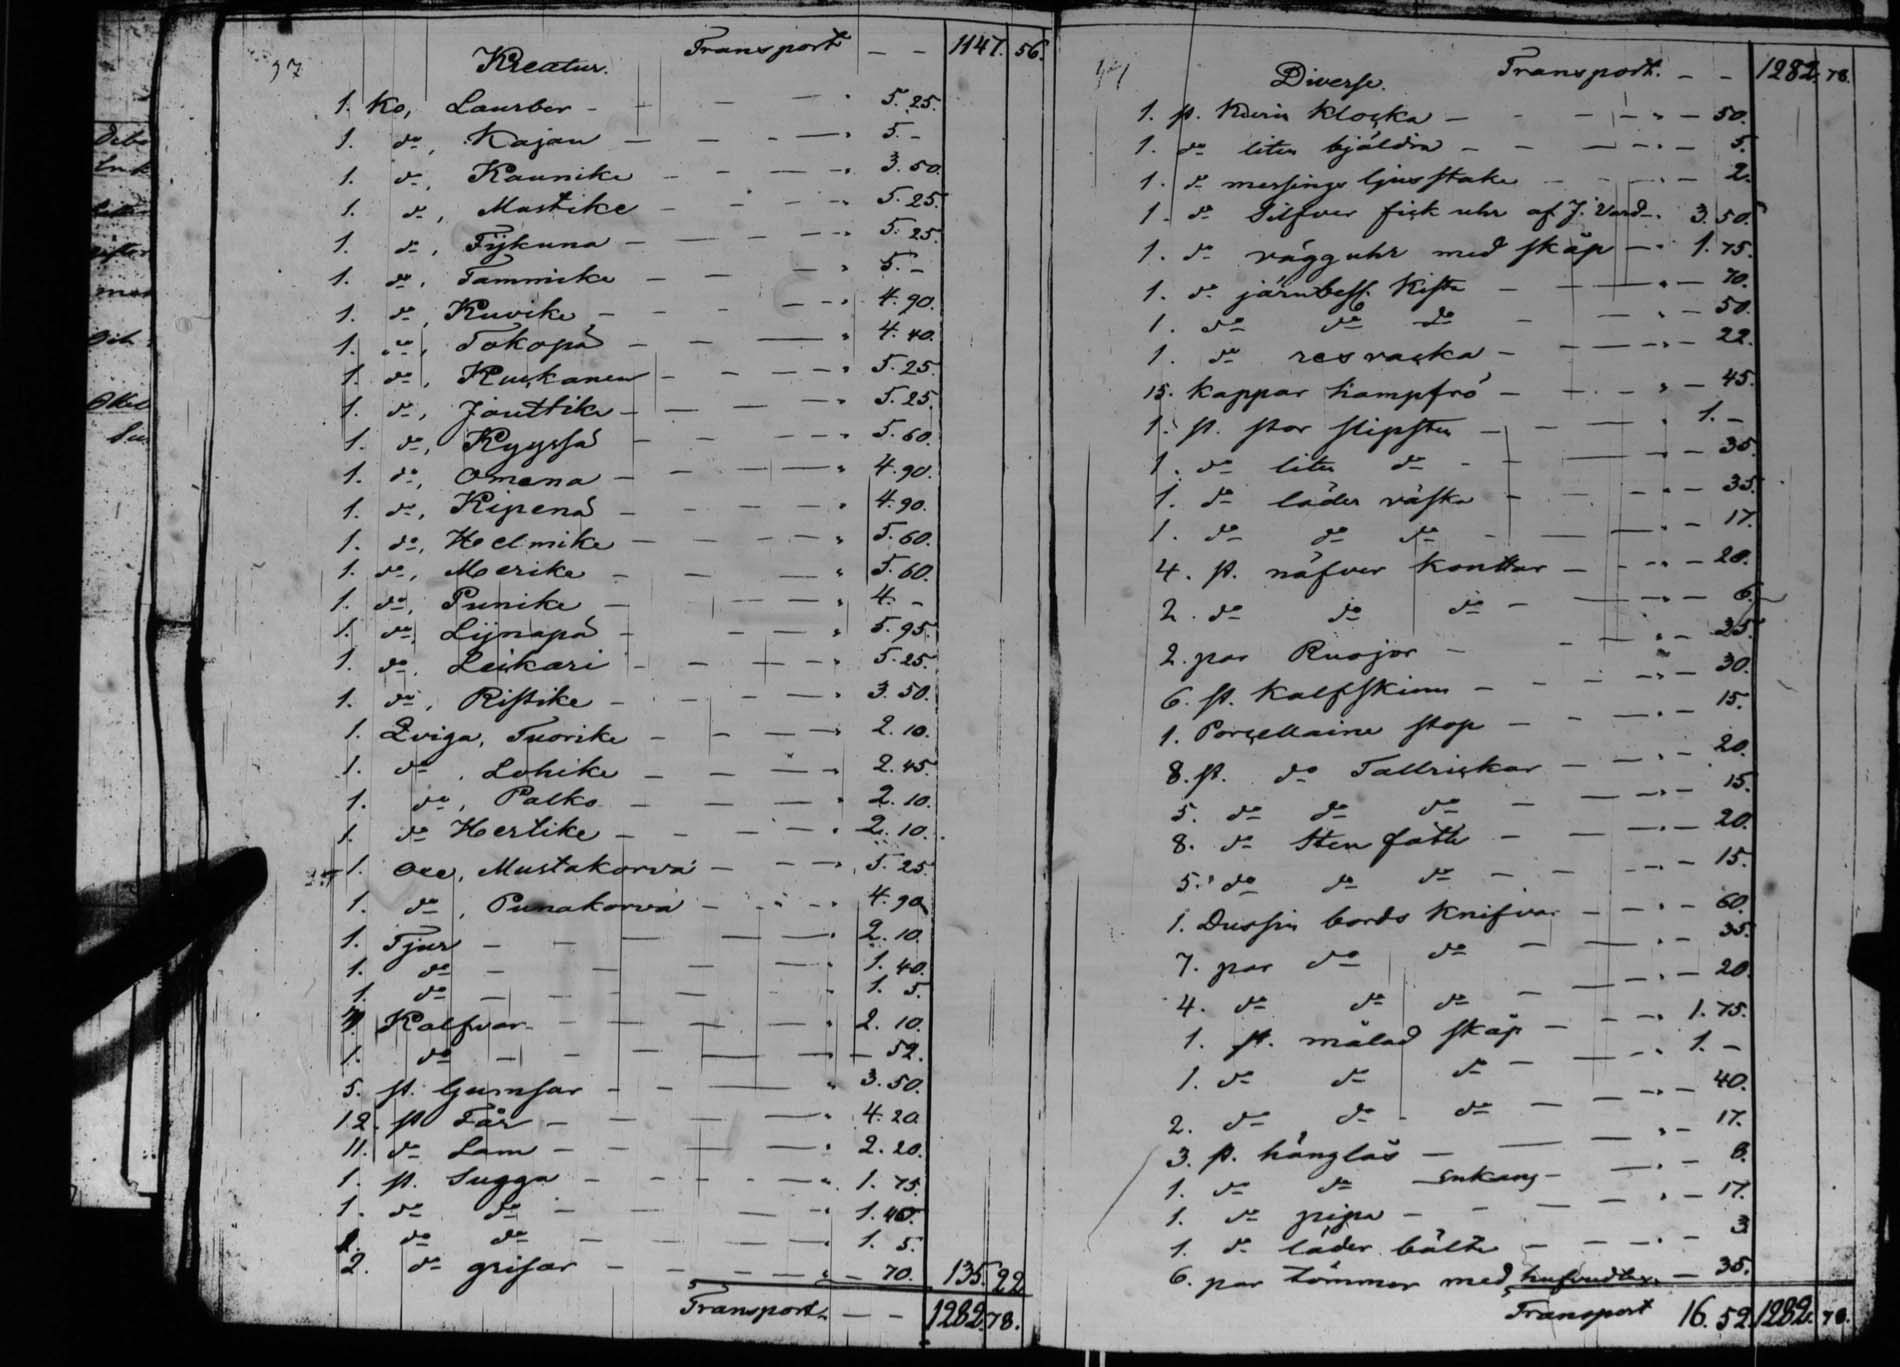 Transport — — 1147. 56.
Kreatur.
1. Ko, Laurber - - - 5. 25.
1. do, Kajan - - - 5. -
1. do, Kaunike - - - 3. 50.
1. do, Mastike - - - 5. 25.
1. do, Tÿkuna - - - 5. 25.
1. do, Tammike - - - 5. -
1. do, Kuvike - - - 4. 90.
1. do, Tokopä - - - 4. 40.
1. do, Kuckanen - - - 5. 25.
1. do, Jouttike - - - 5. 25.
1. do, Kyyssä - - - 5. 60.
1. do, Omena - - - 4. 90.
1. do, Ripenä - - - 4. 90.
1. do, Helmike - - - 5. 60.
1. do, Merike - - - 5. 60.
1. do, Punike - - - 4. -
1. do, Lijnapä - - - 5. 95.
1. do, Leikari - - - 5. 25.
1. do, Ristike - - - 3. 50.
1. Qviga, Tuorike - - - 2. 10.
1. do, Lohike - - - 2. 45.
1. do, Palko - - - 2. 10.
1. do Hertike - - - 2. 10.
1. Oxe, Mustakorva - - - 5. 25.
1. do, Punakorva - - - 4. 90.
1. Tjur - - - 2. 10.
1. do - - - 1. 40.
1. do - - - 1. 5.
Kalfvar - - - 2. 10.
1. do - - - 52.
5. st. Gumsar - - - 3. 50.
12. st Får - - - 4. 20.
11. do Lam - - - 2. 20.
1. st. Sugga - - - 1. 75.
1. do do - - - 1. 40.
1. do do - - - 1. 5.
2. do grisar - - - 70. 135. 22
Transport - - 1282. 78.
Transport. - - 1282. 78.
Diverse.
1. st. Klocka - - - 50.
1. do liten bjäldra - - - 5.
1. do messings ljusstake - - - 2.
1. do Silfver fick uhr af J. Vard - 3. 50.
1. do vägguhr med skåp - - 1. 75.
1. do järnbesl. Kista - - - 70.
1. do do do - - - 50.
1. do resvacka - - - 22.
15. kappar hampfrö - - - 45.
1. st. stor slipsten - - - 1. -
1. do liten do - - - 35.
1. do läder väska - - - 35.
1. do do do - - - 17.
4. st. näfver konttar - - - 20.
2. do do do - - - 6.
2. par Ruojor - - - 25.
6. st. Kalfskinn - - - 30.
1. Porcellaine stop - - - 15.
8. st. do Tallrickar - - - 20.
5. do do do - - - 15.
8. do Sten fatt - - - 20.
5. do do do - - - 15.
1. Dussin bords Knifvar - - - 60.
7. par do do - - - 35.
4. do do do - - - 20.
1. st. målad skåp - - - 1. 75.
1. do do do - - - 1. -
2. do do do - - - 40.
3. st. hänglås - - - 17.
1. do do - - - 8.
1. do pipa - - - 17.
1. do läder bälte - - - 3
6. par tömmar med - 35.
Transport 16. 52 1282. 78.